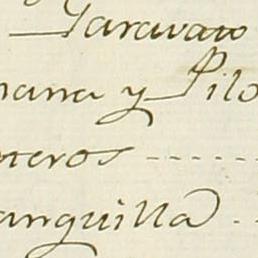 Garavato
mana y Pilo
oteros
anquilla